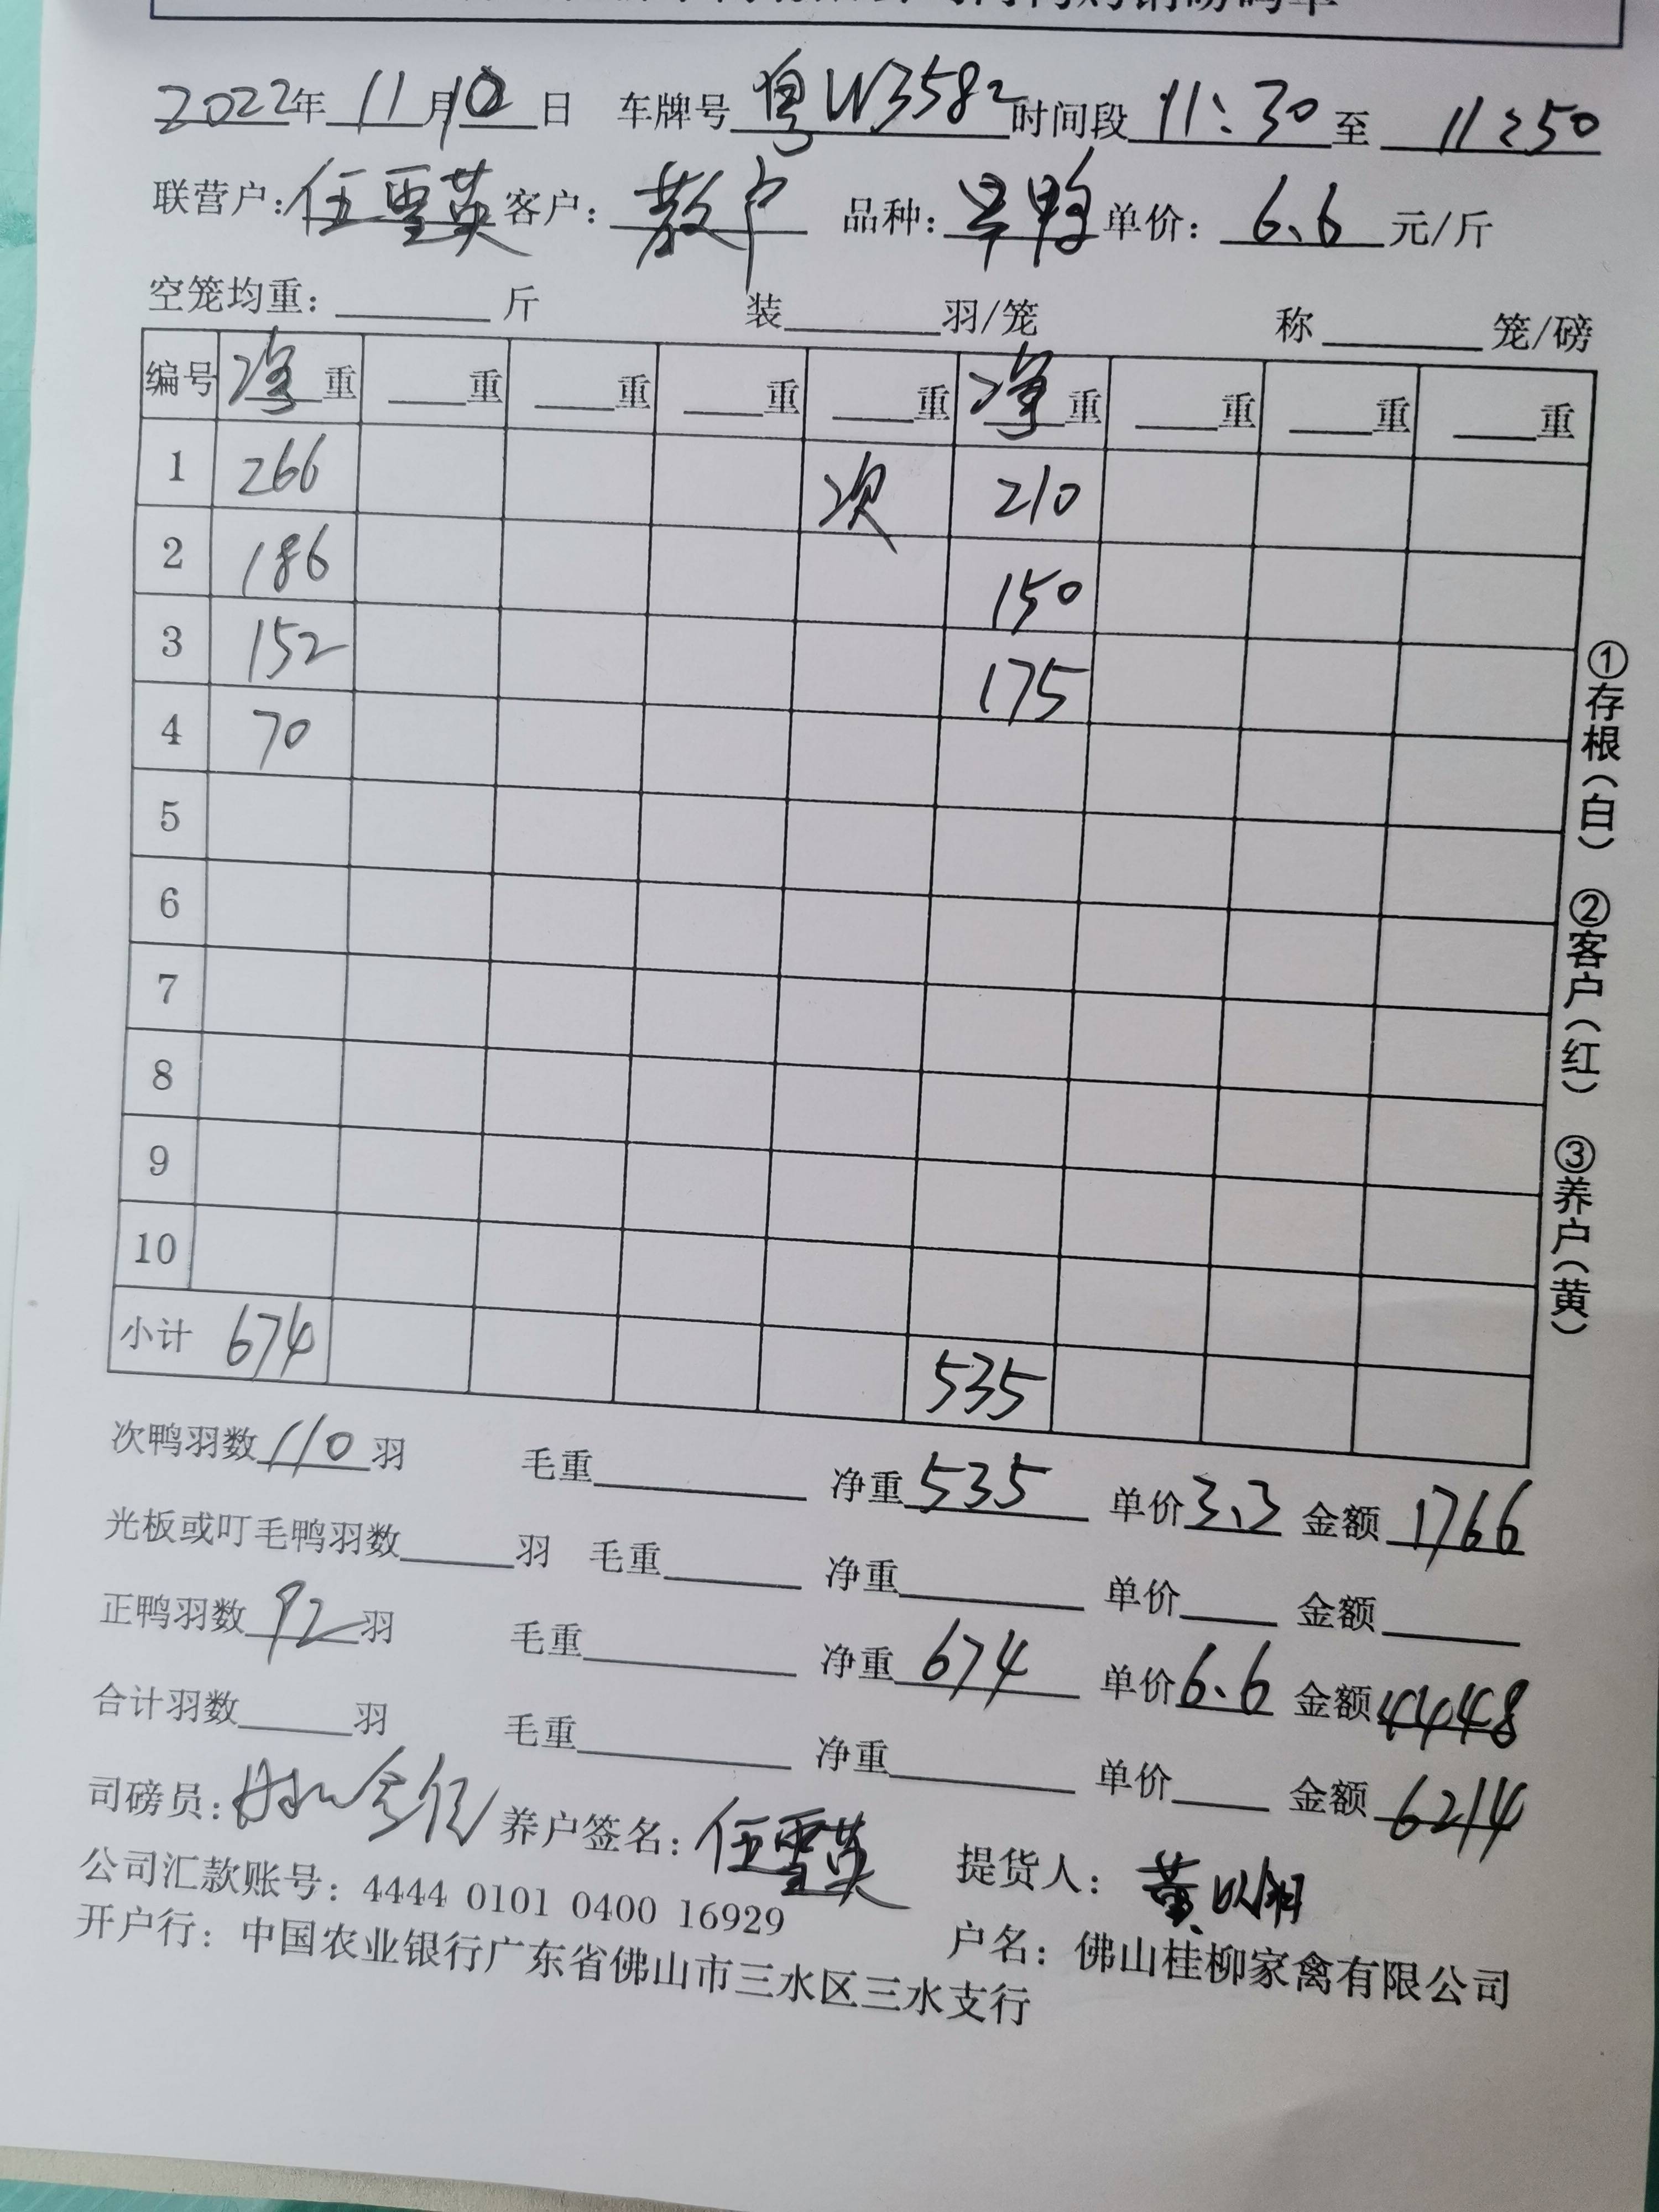 购销磅码单
2022年 11月10日 车牌号 粤W3582 时间段 11:30 至 11:50
联营户: 任雪英 客户: 散户 品种: 旱鸭 单价: 6.6 元/斤
空笼均重: 斤 装 羽/笼 称 笼/磅
编号 净重 重 重 重 重 净重 重 重 重
1 266 次 210
2 186 150
3 152 175
4 70
5
6
7
8
9
10
小计 674 535
①存根(白) ②客户(红) ③养户(黄)
次鸭羽数 110 羽 毛重 净重 535 单价 3.3 金额 1766
光板或叮毛鸭羽数 羽 毛重 净重 单价 金额
正鸭羽数 92 羽 毛重 净重 674 单价 6.6 金额 4448
合计羽数 羽 毛重 净重 单价 金额 6214
司磅员: 养户签名: 任雪英 提货人: 黄
公司汇款账号: 4444 0101 0400 16929 户名: 佛山桂柳家禽有限公司
开户行: 中国农业银行广东省佛山市三水区三水支行